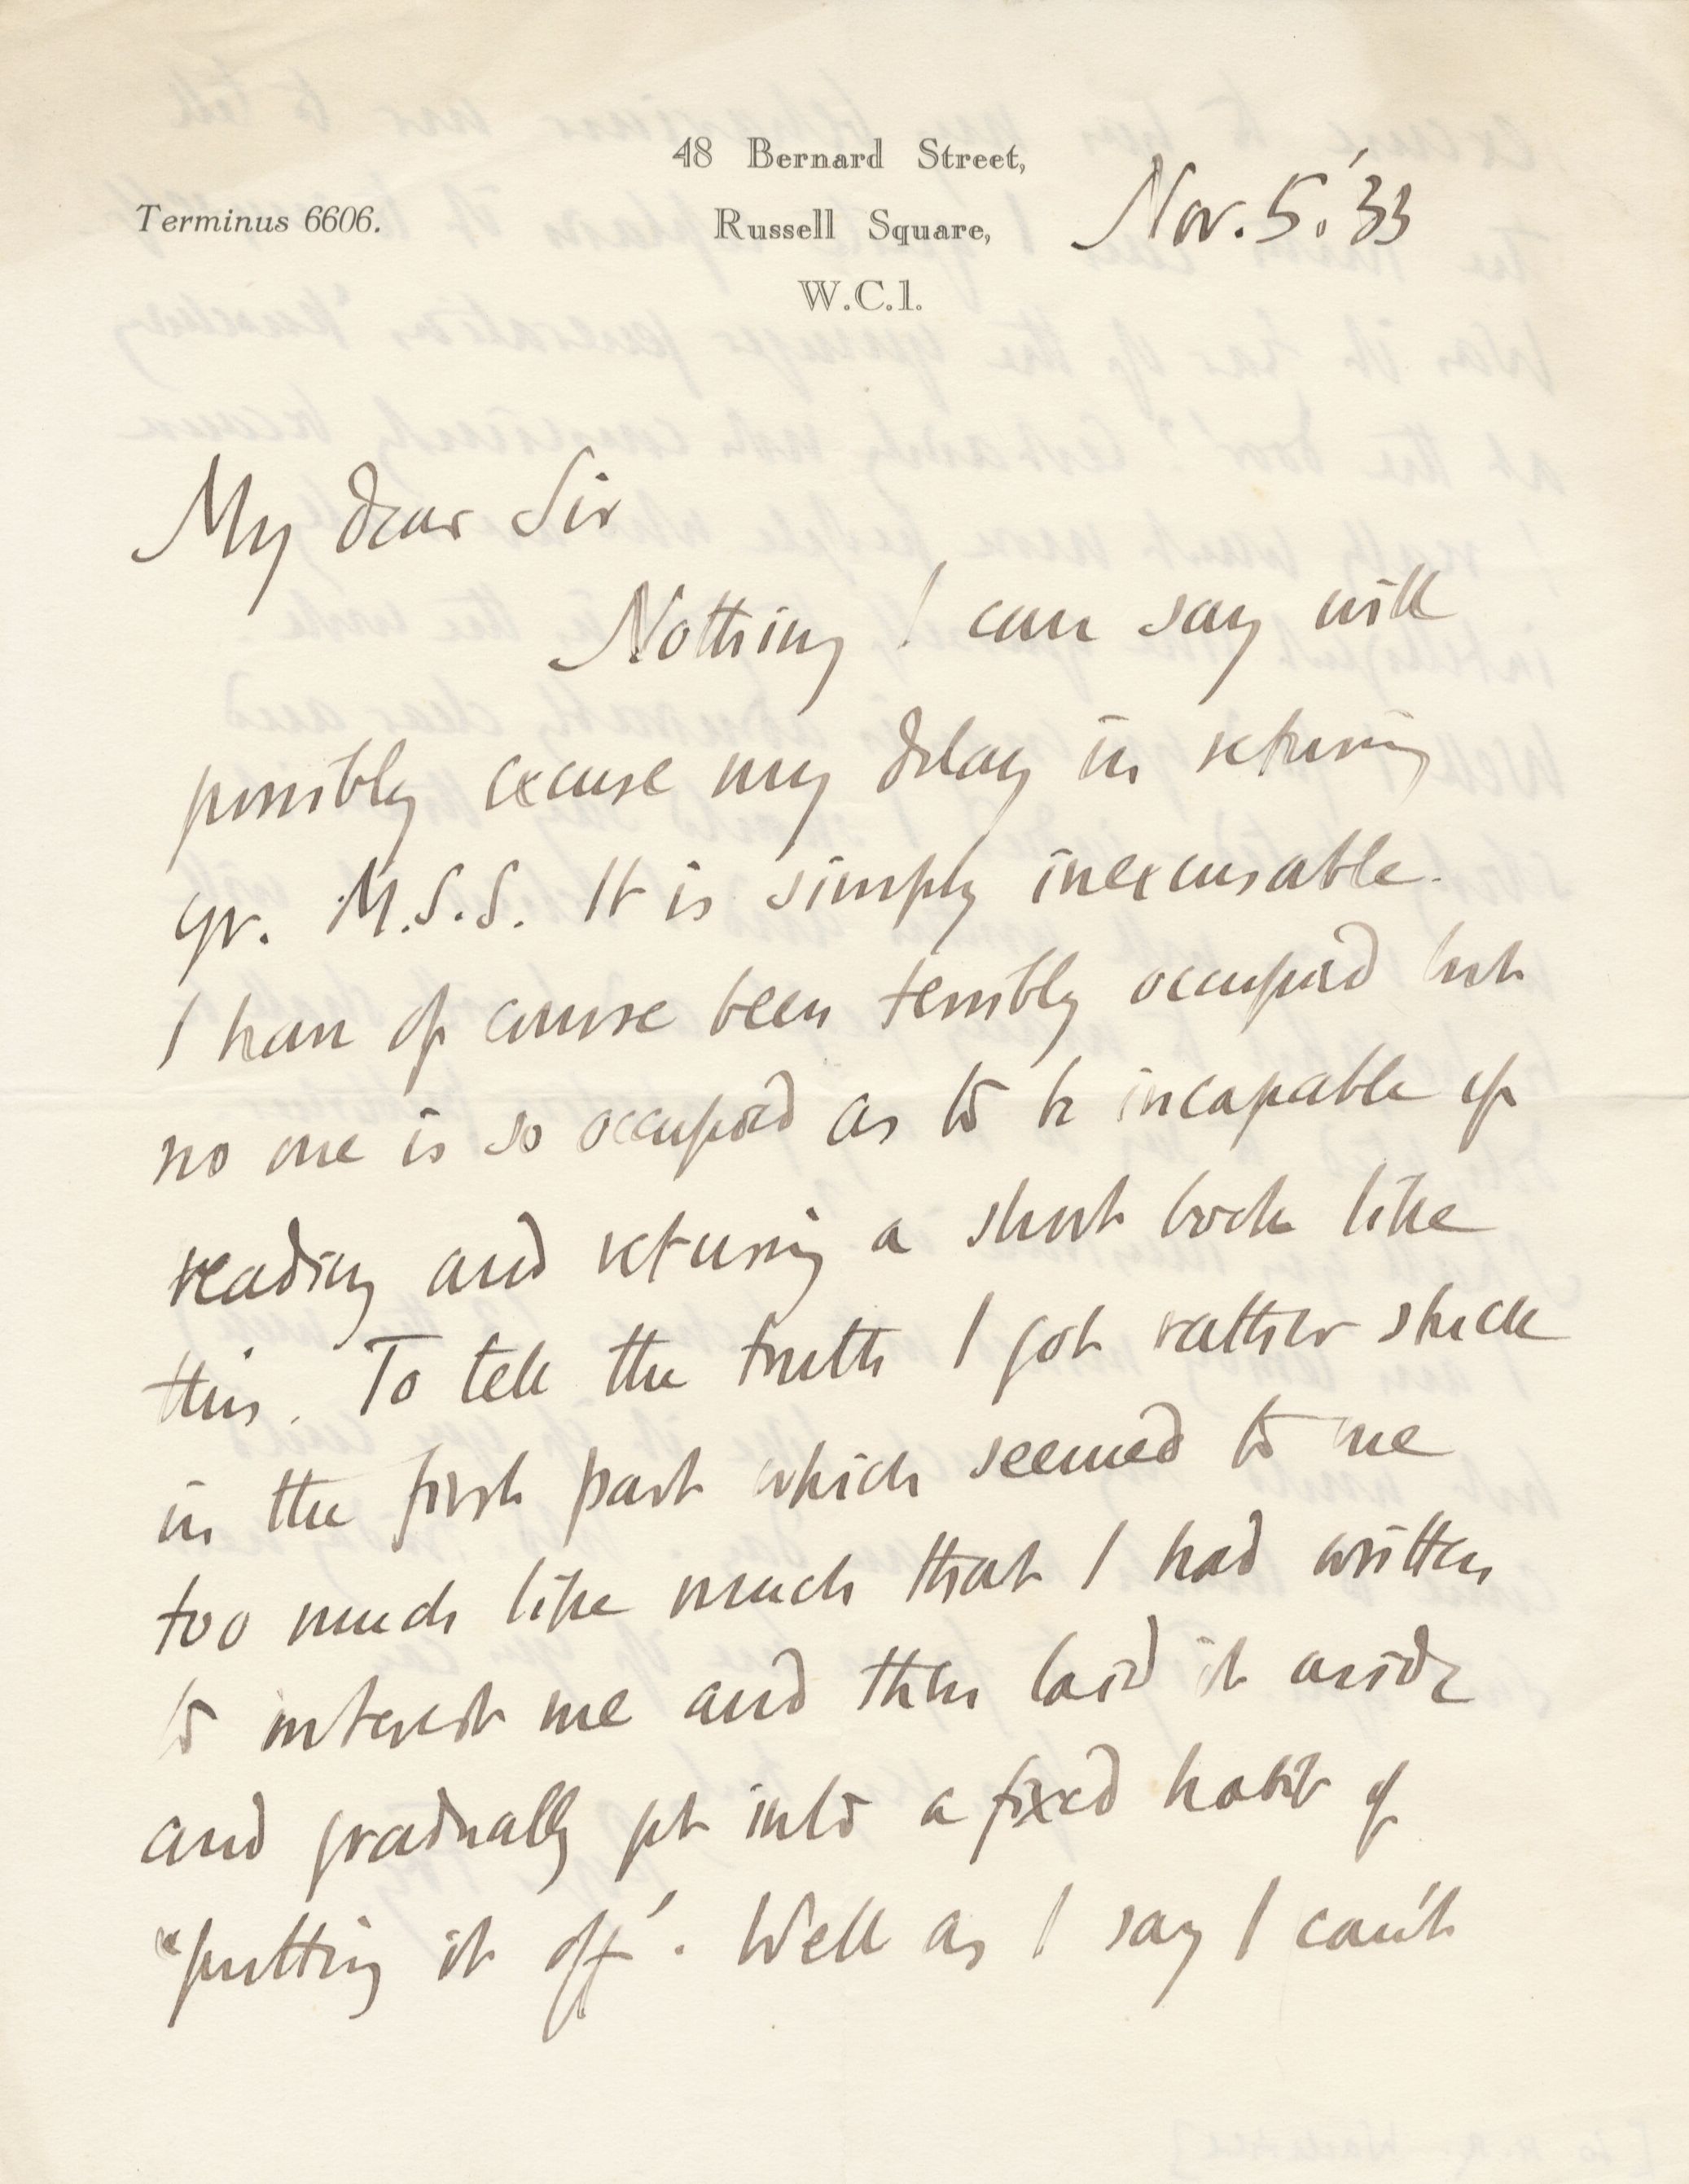 48 Bernard Street,
Terminus 6606.
Russell Square,
Nov. 5. '33
W.C.1.
My dear Sir
Nothing I can say will
possibly excuse my delay in returning
yr. M.S.S. It is simply inexcusable.
I have of course been terribly occupied but
no one is so occupied as to be incapable of
reading and returning a short book like
this. To tell the truth I got rather stuck
in the first part which seemed to me
too much like much that I had written
to interest me and then laid it aside
and gradually got into a fixed habit of
"putting it off". Well as I say I can't